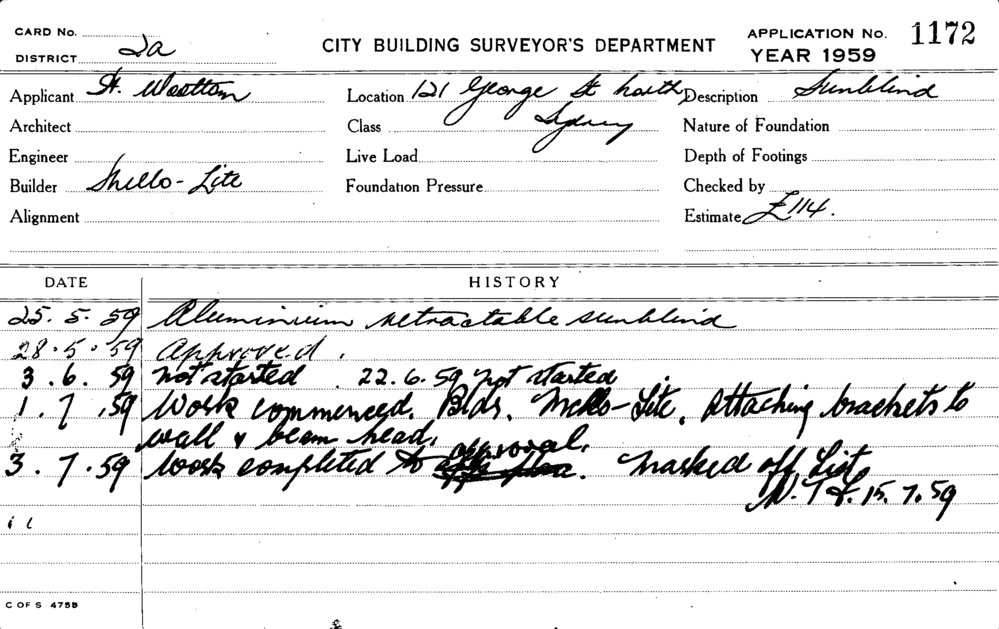 CARD No.
DISTRICT 2a
CITY BUILDING SURVEYOR'S DEPARTMENT
APPLICATION No. 1172
YEAR 1959
Applicant H. Wootton
Location 121 George St north Sydney
Description Sunblind
Architect
Class
Nature of Foundation
Engineer
Live Load
Depth of Footings
Builder Mello-Lite
Foundation Pressure
Checked by
Alignment
Estimate £114.
DATE HISTORY
25.5.59 Aluminium retractable sunblind
28.5.59 Approved.
3.6.59 Not started. 22.6.59 Not started
1.7.59 Work commenced. Bldr. Mello-Lite. Attaching brackets to
wall & beam head.
3.7.59 Work completed to approval. Marked off List.
15.7.59
C OF S 475B